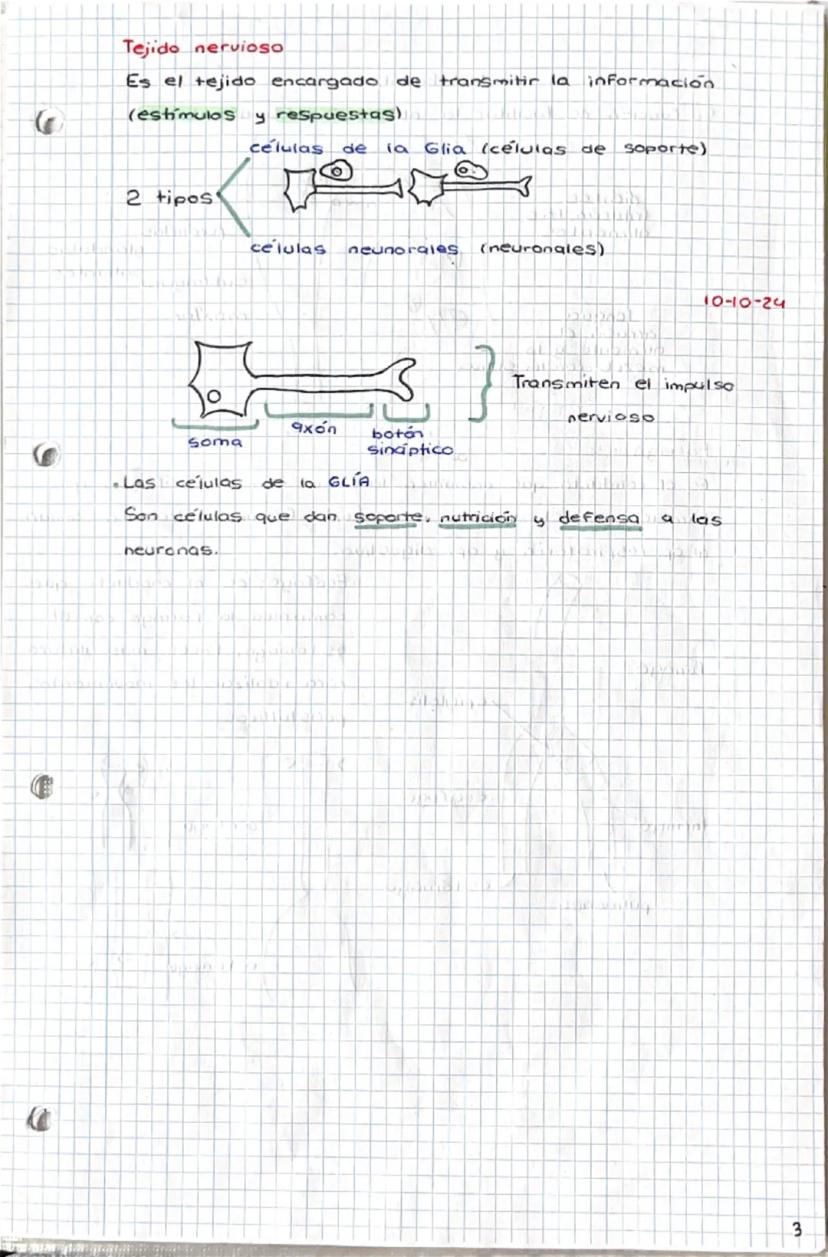 Tejido nervioso
Es el tejido encargado de transmitir la información
(estímulos y respuestas)
células de la Glia (células de soporte)
2 tipos
células neunorales (neuronales)
10-10-24
Transmiten el impulso
nervioso
soma
axón
botón
sináptico
. Las células de la GLÍA
Son células que dan soporte, nutrición y defensa a las
neuronas.
3